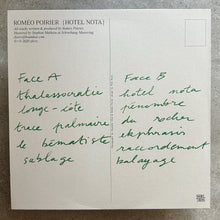 ROMÉO POIRIER [HOTEL NOTA]
All tracks written & produced by Roméo Poirier.
Mastered by Stephan Mathieu at Schwebung Mastering
Face A
thalassocratie
longe-côte
trace palmaire
le bématiste
sablage
Face B
hotel nota
pénombre
du rocher
ekphrasis
raccordement
balayage